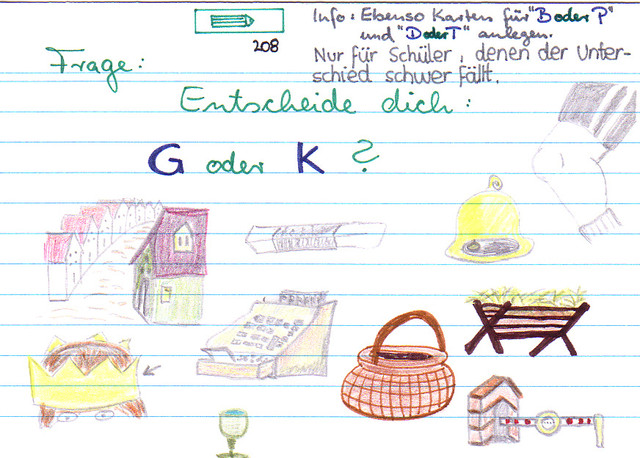 Info: Ebenso Karten für "B oder P"
und "D oder T" anlegen.
208
Nur für Schüler, denen der Unter-
schied schwer fällt.
Frage:
Entscheide dich:
G oder K ?